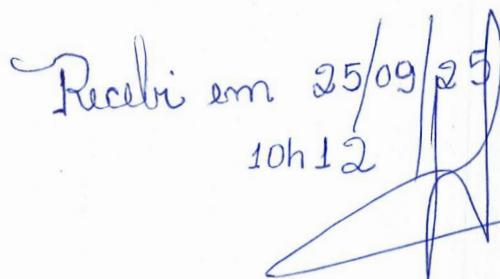 Recebi em 25/09/25
10h12